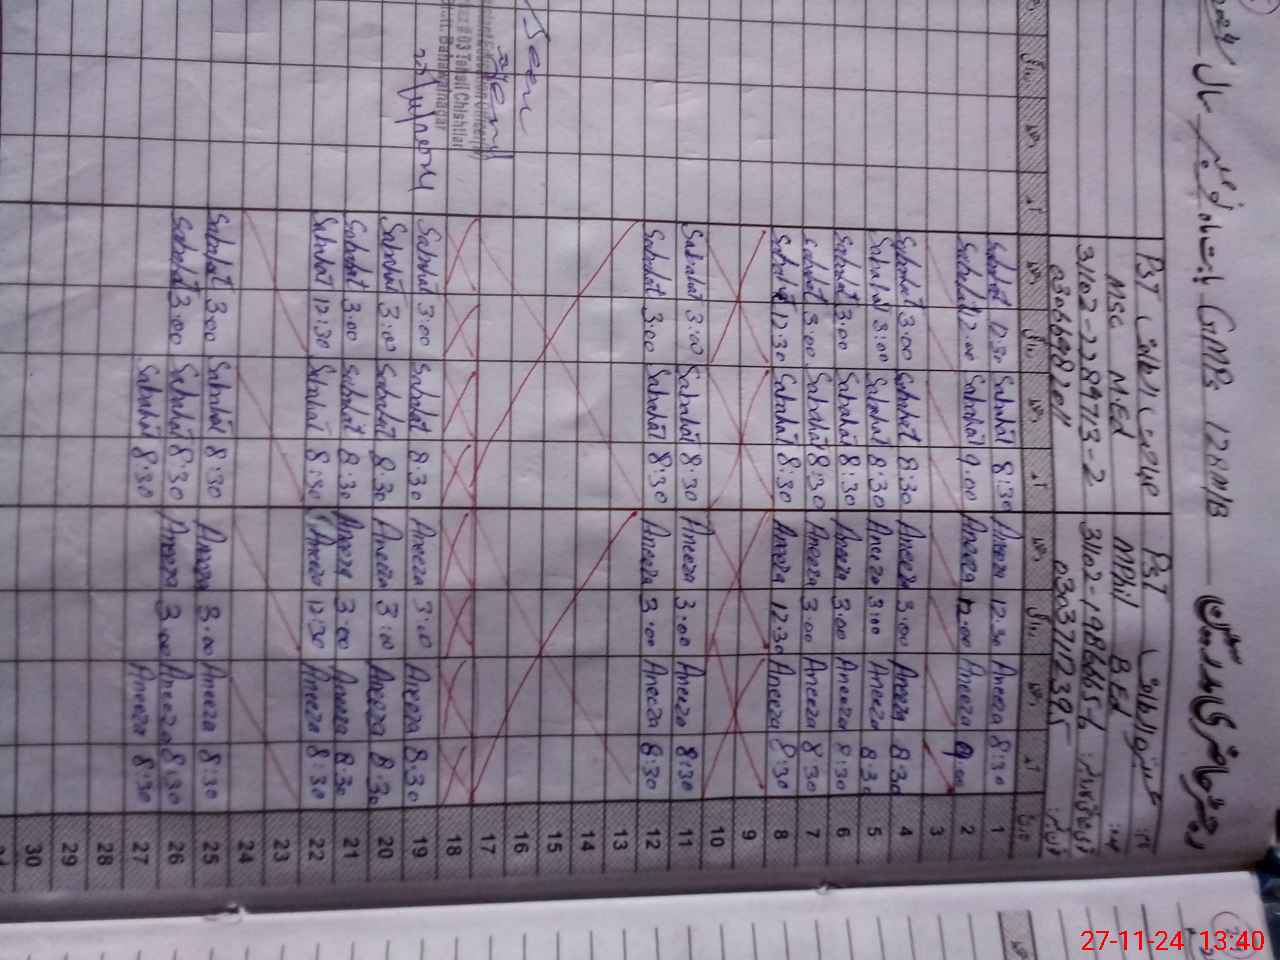 رجسٹر حاضری مدرسین GMPS 12RM/B بابت ماہ نومبر سال 2024
نام PST PST
MPhil B.Ed MSC M.Ed
31102-1986665-6 31102-2289713-2
03037112395 03066982011
1 8:30 Aneeza 12:30 Aneeza 8:30 Sabahat 12:30 Sabahat
2 9:00 Aneeza 12:00 Aneeza 9:00 Sabahat 12:00 Sabahat
3
4 8:30 Aneeza 3:00 Aneeza 8:30 Sabahat 3:00 Sabahat
5 8:30 Aneeza 3:00 Aneeza 8:30 Sabahat 3:00 Sabahat
6 8:30 Aneeza 3:00 Aneeza 8:30 Sabahat 3:00 Sabahat
7 8:30 Aneeza 3:00 Aneeza 8:30 Sabahat 3:00 Sabahat
8 8:30 Aneeza 12:30 Aneeza 8:30 Sabahat 12:30 Sabahat
9
10
11 8:30 Aneeza 3:00 Aneeza 8:30 Sabahat 3:00 Sabahat
12 8:30 Aneeza 3:00 Aneeza 8:30 Sabahat 3:00 Sabahat
13
14
15
16
17
18
19 8:30 Aneeza 3:00 Aneeza 8:30 Sabahat 3:00 Sabahat
20 8:30 Aneeza 3:00 Aneeza 8:30 Sabahat 3:00 Sabahat
21 8:30 Aneeza 3:00 Aneeza 8:30 Sabahat 3:00 Sabahat
22 8:30 Aneeza 12:30 Aneeza 8:30 Sabahat 12:30 Sabahat
23
24
25 8:30 Aneeza 3:00 Aneeza 8:30 Sabahat 3:00 Sabahat
26 8:30 Aneeza 3:00 Aneeza 8:30 Sabahat 3:00 Sabahat
27 8:30 Aneeza 8:30 Sabahat
28
29
30
Seen
Education Officer
# 03 Tehsil Chishtian
Bahawalnagar
27-11-24 13:40